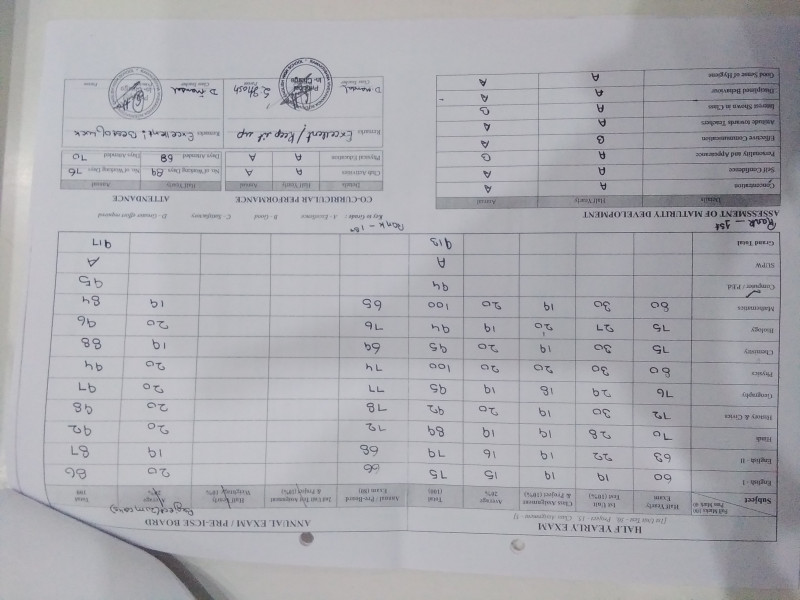 HALF YEARLY EXAM
ANNUAL EXAM / PRE-ICSE BOARD
Subject Full Marks 100 Pass Mark 40 Half Yearly Exam 1st Unit Test (10%) Class Assignment & Project (10%) Average 20% Total (100) Annual / Pre-Board Exam (80) 2nd Unit Assignment & Project (10%) Half Yearly Weightage 10% Average 20% Total 100
English - I 60 19 19 15 75 66 20 86
English - II 63 22 19 16 79 68 19 87
Hindi 70 28 19 19 89 72 20 92
History & Civics 72 30 19 20 92 78 20 98
Geography 76 29 18 19 95 77 20 97
Physics 80 30 20 20 100 74 20 94
Chemistry 75 30 19 20 95 69 19 88
Biology 75 27 20 19 94 76 20 96
Mathematics 80 30 19 20 100 65 19 84
Computer / P.Ed 94 95
SUPW A A
Grand Total 913 917
Rank - 1st
Rank - 1st
ASSESSMENT OF MATURITY DEVELOPMENT
Key to Grade : A - Excellence B - Good C - Satisfactory D - Greater effort required
Details Half Yearly Annual
Concentration A A
Self Confidence A A
Personality and Appearance A G
Effective Communication G A
Attitude towards Teachers A A
Interest Shown in Class A G
Disciplined Behaviour A A
Good Sense of Hygiene A A
CO-CURRICULAR PERFORMANCE
Details Half Yearly Annual
Club Activities A A
Physical Education A A
ATTENDANCE
Half Yearly Annual
No. of Working Days 89 No. of Working Days 76
Days Attended 68 Days Attended 70
Remarks Excellent / Keep it up
Remarks Excellent! Best of luck
D Mandal
Class Teacher
S. Ghosh
Parent
D Mandal
Class Teacher
Parent